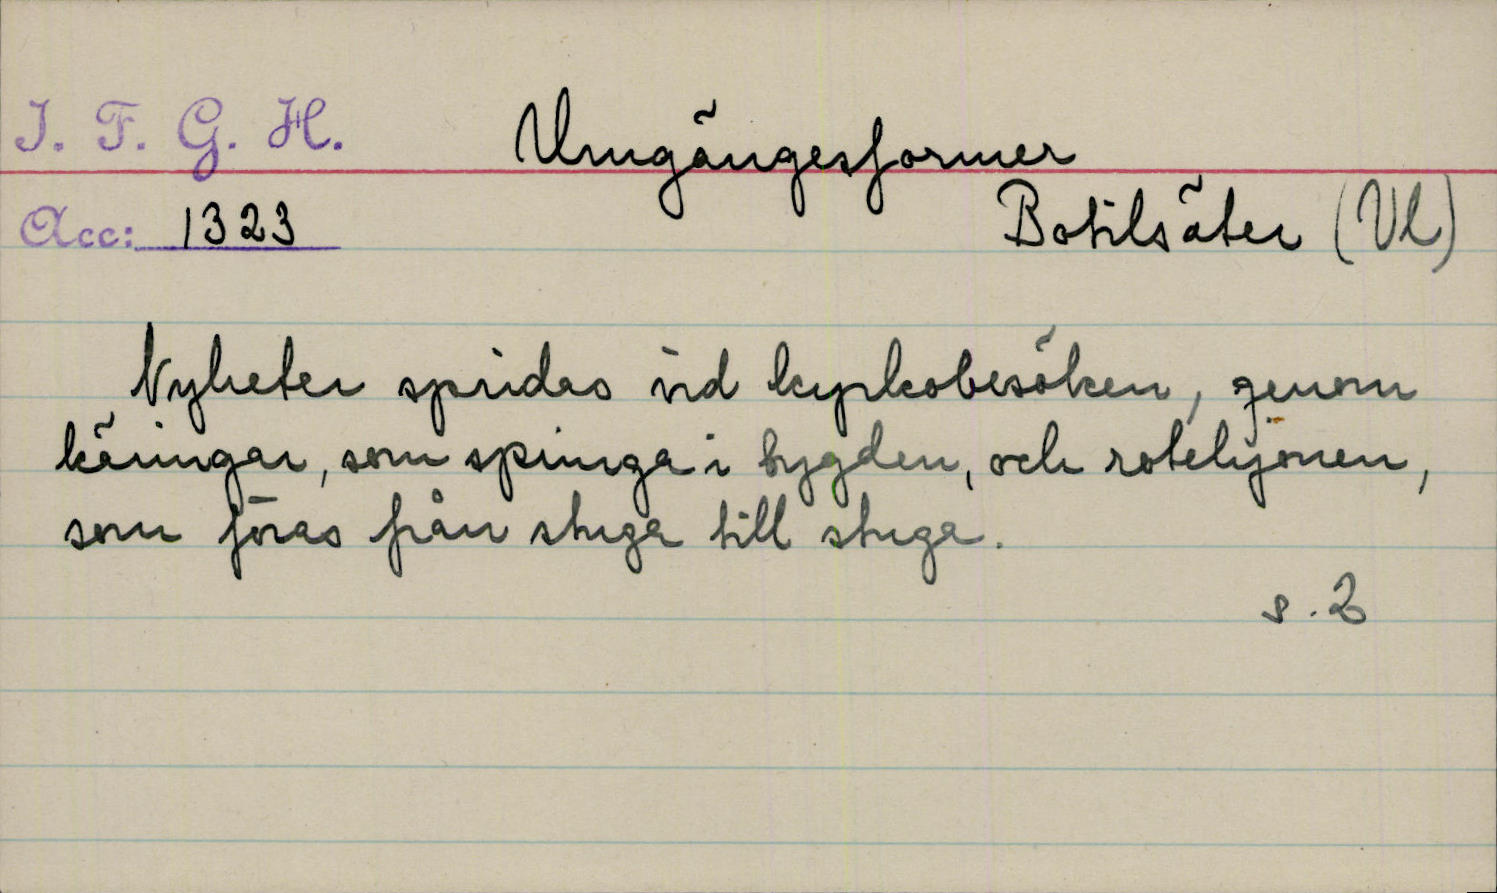 I. F. G. H.
Umgängesformer
Acc: 1323
Botilsäter (Vl)
Nyheter spridas vid kyrkobesöken, genom
käringar, som springa i bygden, och rotehjonen,
som föras från stuga till stuga.
s. 2